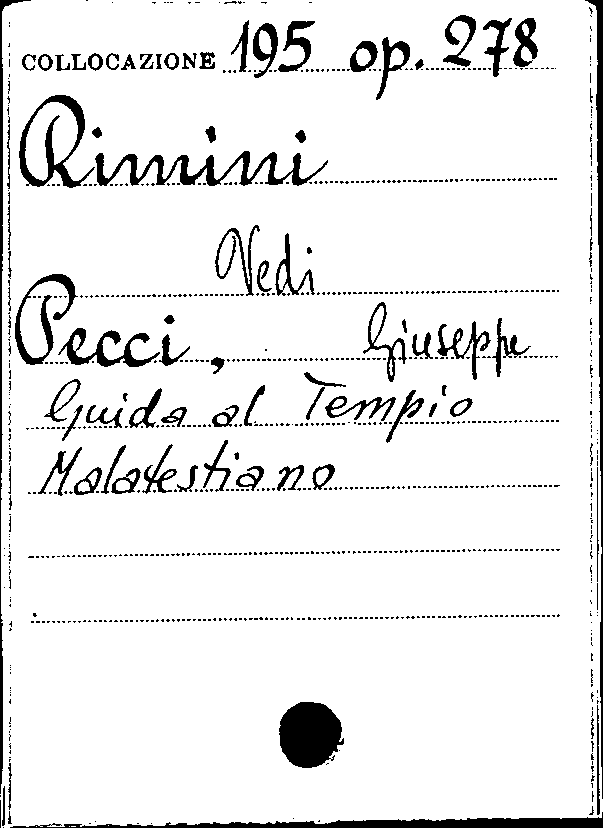 COLLOCAZIONE 195 op. 278
Rimini
Vedi
Pecci, Giuseppe
Guida al Tempio
Malatestiano